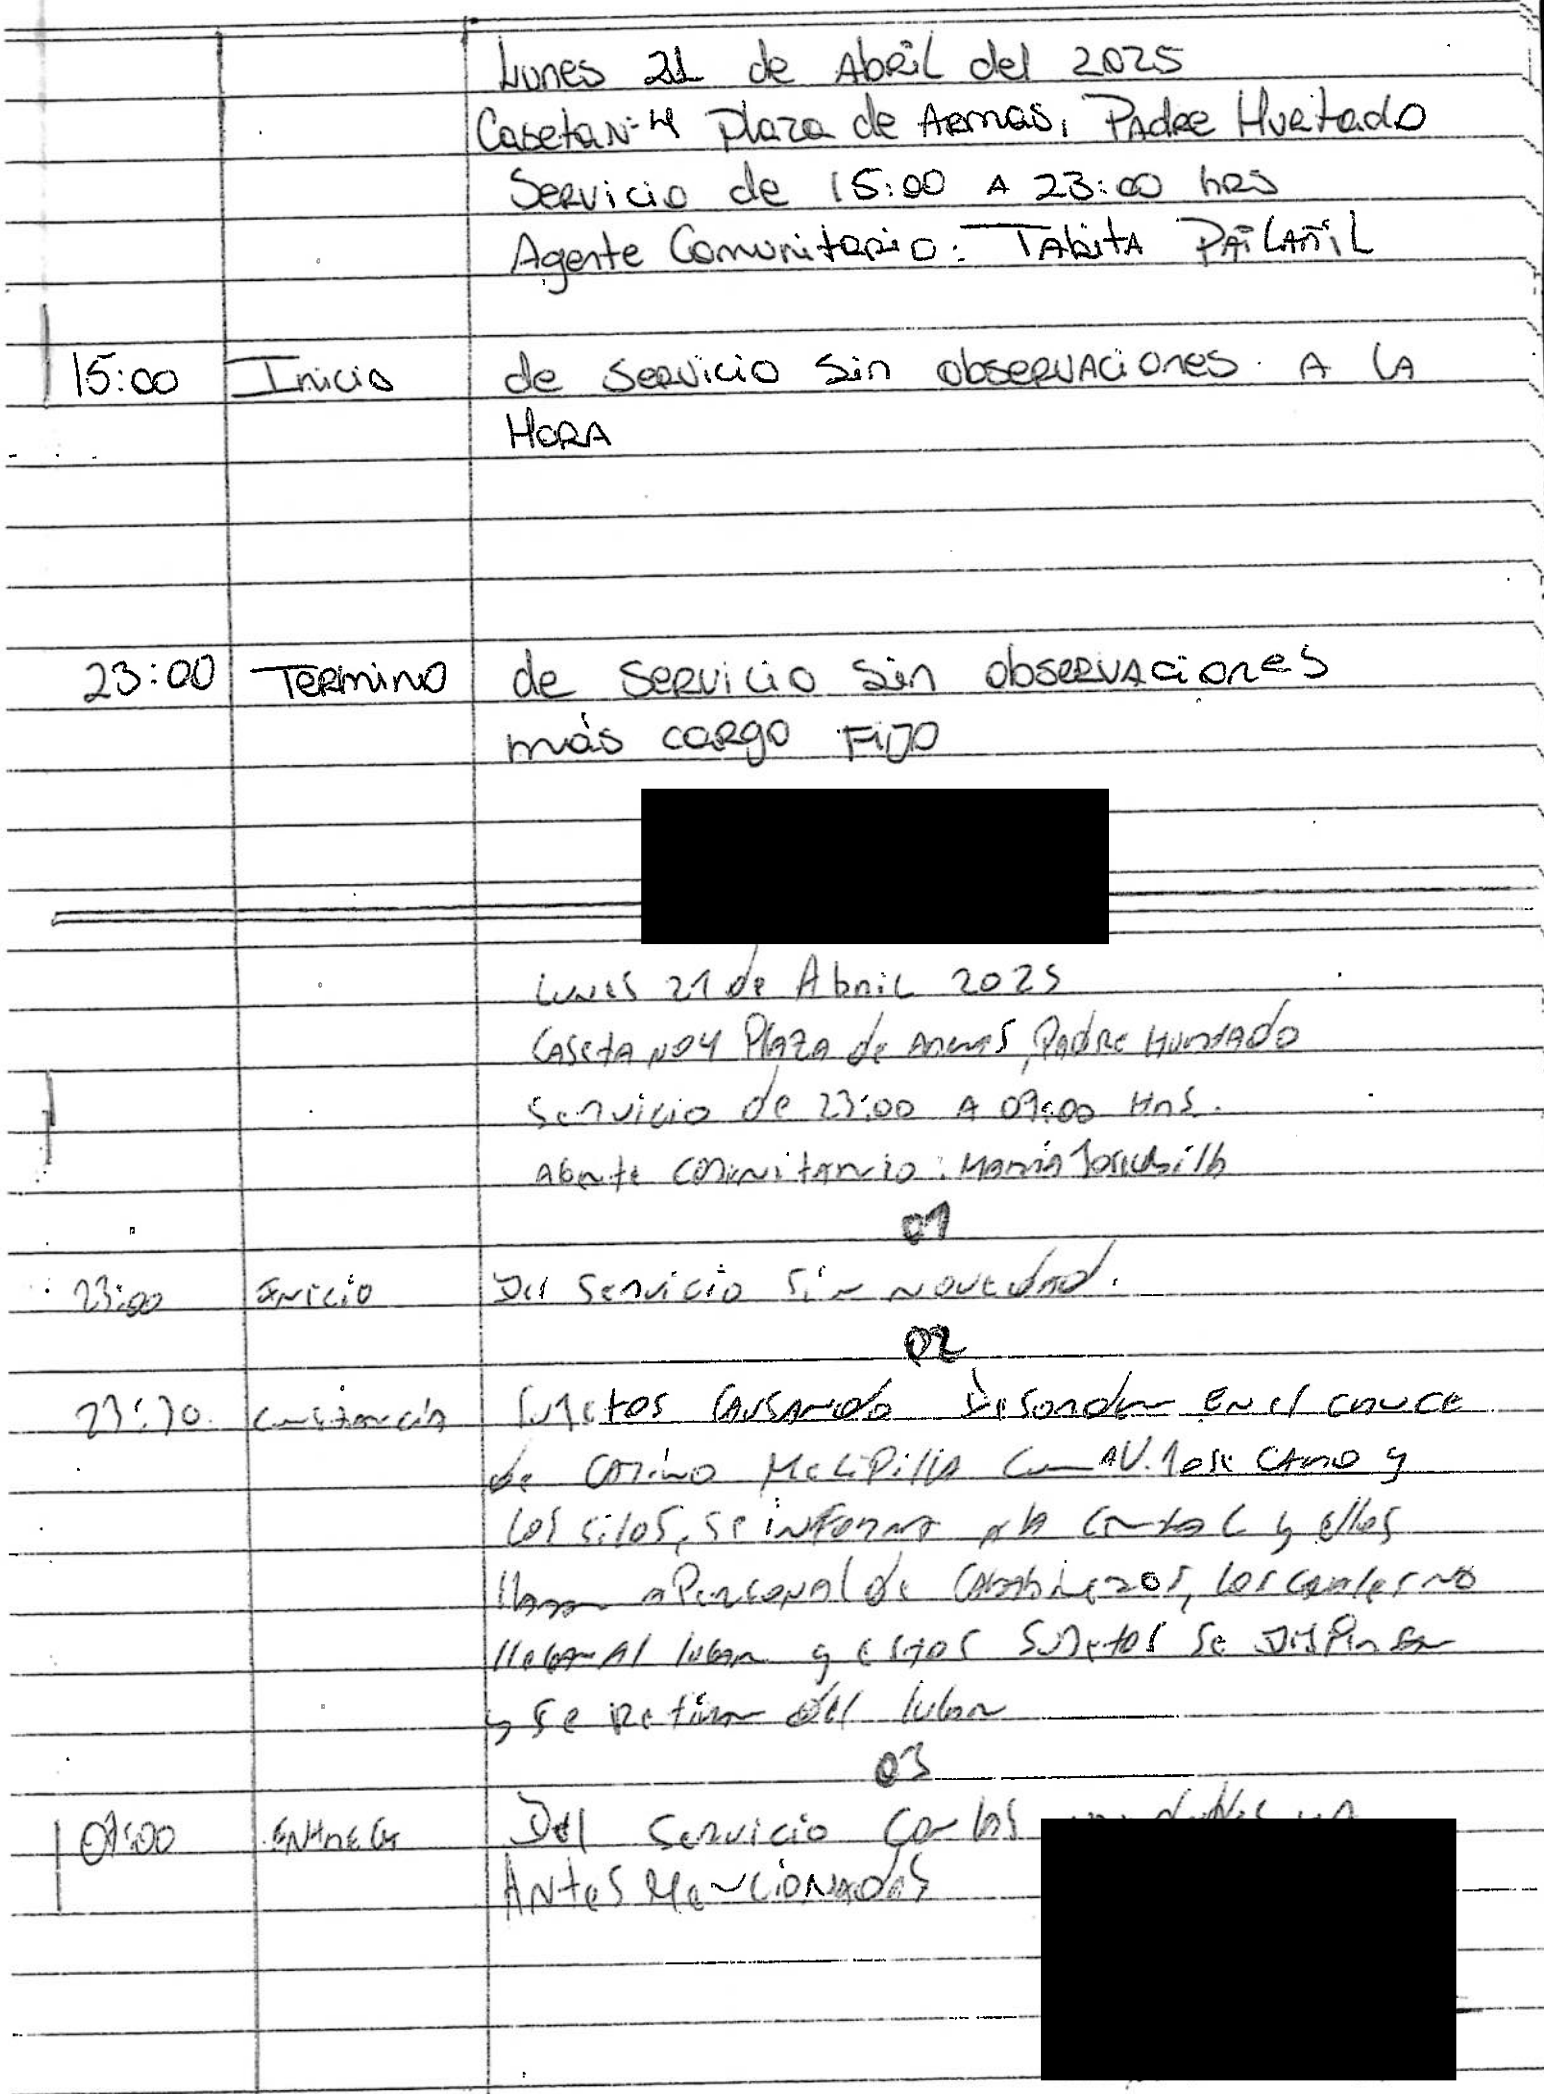 Lunes 21 de Abril del 2025
Caseta N-4 Plaza de Armas, Padre Hurtado
Servicio de 15:00 A 23:00 hrs
Agente Comunitario: TAbitA PAiLAñiL
15:00 Inicio de servicio sin observaciones A LA
HORA
23:00 Termino de servicio sin observaciones
más cargo FIJO
Lunes 21 de Abril 2025
Caseta Nº4 Plaza de Armas, Padre Hurtado
Servicio de 23:00 A 09:00 Hrs.
Agente Comunitario: María
01
23:00 Inicio Del Servicio Sin Novedad.
02
Constancia Sujetos Causando Desorden En el cruce
de Camino Melipilla Con AV. Jose CAnO y
Los silos, se informa a la Central y ellos
llaman a Personal de Carabineros, los cuales no
llegan al lugar y estos Sujetos Se Dispersan
y se Retiran del lugar
03
Entrega Del Servicio Con las
Antes Mencionadas